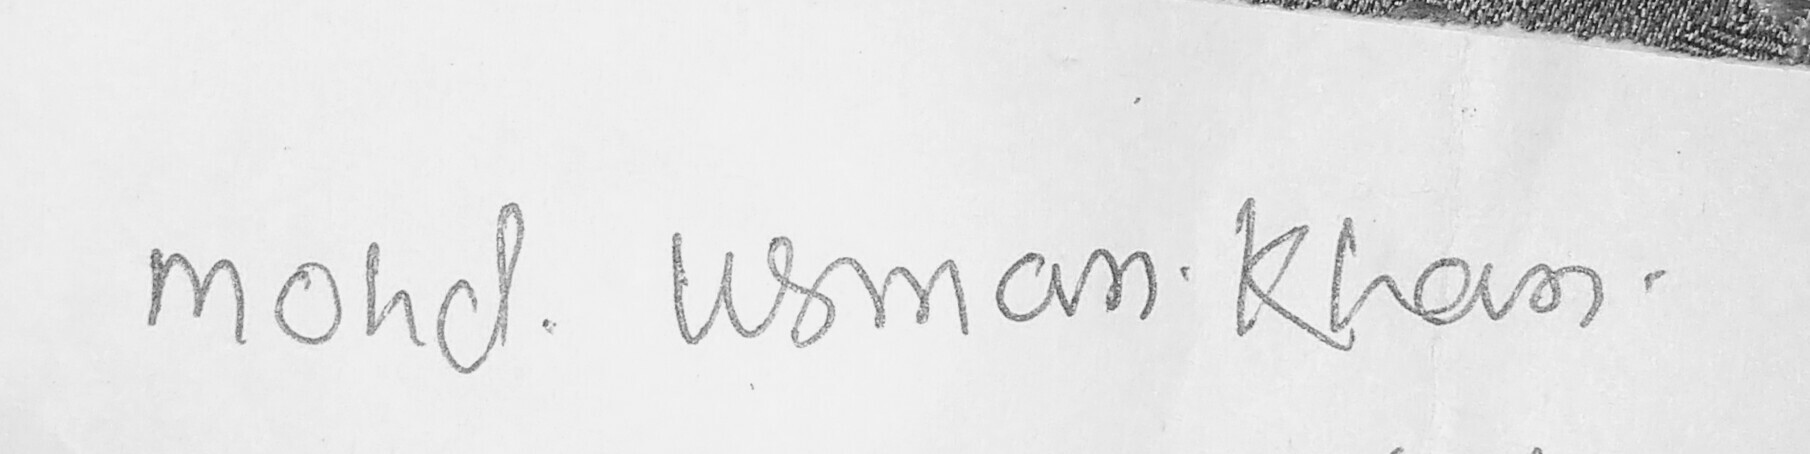 Mohd. Usman. Khan.